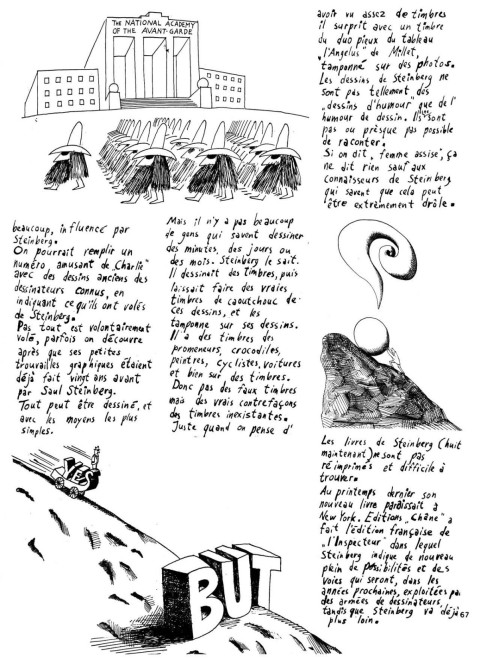 THE NATIONAL ACADEMY
OF THE AVANT-GARDE
beaucoup, influencé par
Steinberg.
On pourrait remplir un
numéro amusant de „Charlie"
avec des dessins anciens des
dessinateurs connus, en
indiquant ce qu'ils ont volés
de Steinberg.
Pas tout est volontairement
volé, parfois on découvre
après que ses petites
trouvailles graphiques étaient
déjà fait vingt ans avant
par Saul Steinberg.
Tout peut être dessiné, et
avec les moyens les plus
simples.
YES
BUT
Mais il n'y a pas beaucoup
de gens qui savent dessiner
des minutes, des jours ou
des mois. Steinberg le sait.
Il dessinait des timbres, puis
laissait faire des vraies
timbres de caoutchouc de
ces dessins, et les
tamponne sur ses dessins.
Il a des timbres des
promeneurs, crocodiles,
peintres, cyclistes, voitures
et bien sur, des timbres.
Donc pas des faux timbres
mais des vrais contrefaçons
des timbres inexistantes.
Juste quand on pense d'
avoir vu assez de timbres
il surprit avec un timbre
du duo pieux du tableau
„l'Angelus" de Millet,
tamponné sur des photos.
Les dessins de Steinberg ne
sont pas tellement des
„dessins d'humour" que de l'
humour de dessin. Ils sont
pas ou presque pas possible
de raconter.
Si on dit „femme assise", ça
ne dit rien sauf aux
connaisseurs de Steinberg
qui savent que cela peut
être extrêmement drôle.
Les livres de Steinberg (huit
maintenant) ne sont pas
réimprimés et difficile à
trouver.
Au printemps dernier son
nouveau livre paraissait à
New York. Editions „Chêne" a
fait l'édition française de
„l'Inspecteur" dans lequel
Steinberg indique de nouveau
plein de possibilités et des
voies qui seront, dans les
années prochaines, exploitées par
des armées de dessinateurs,
tandis que Steinberg va déjà
plus loin.
67